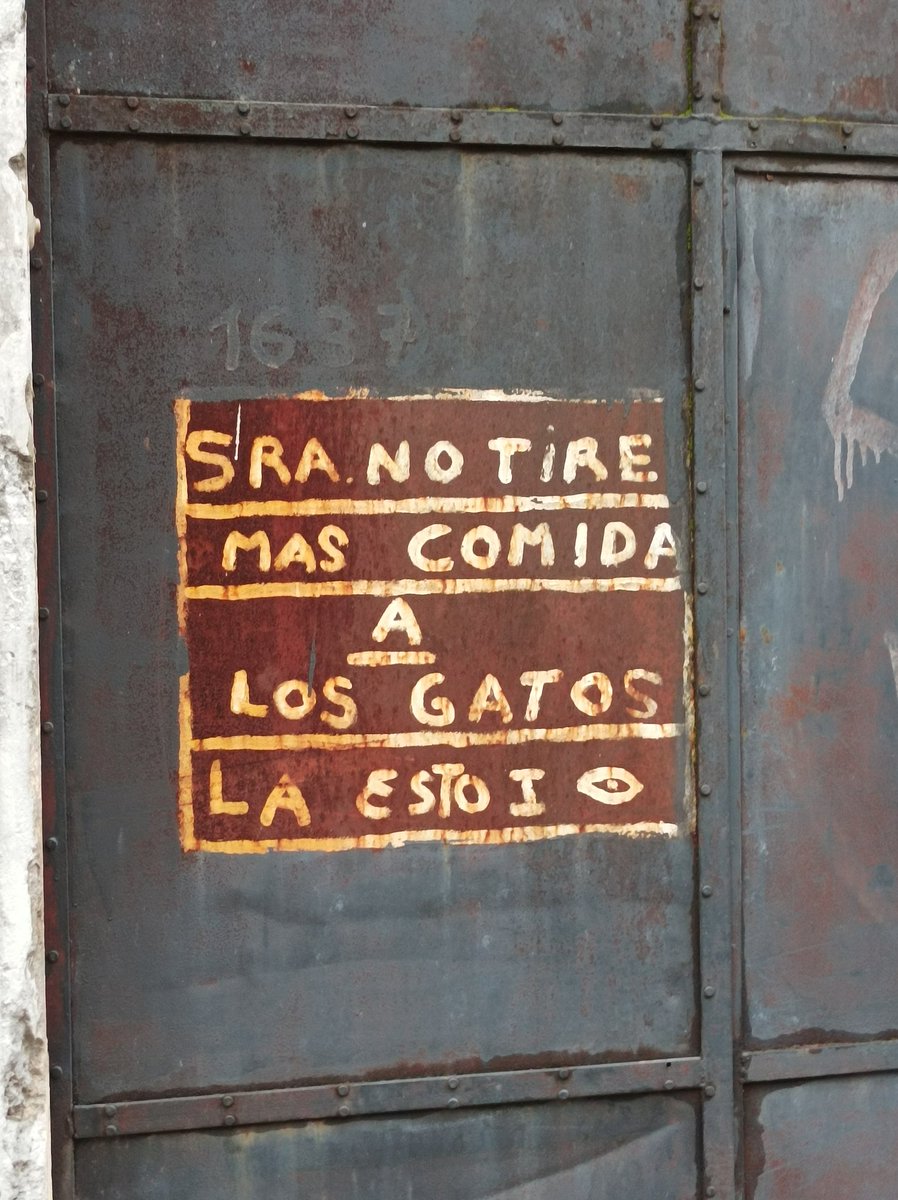 1637
SRA. NO TIRE
MAS COMIDA
A
LOS GATOS
LA ESTOI